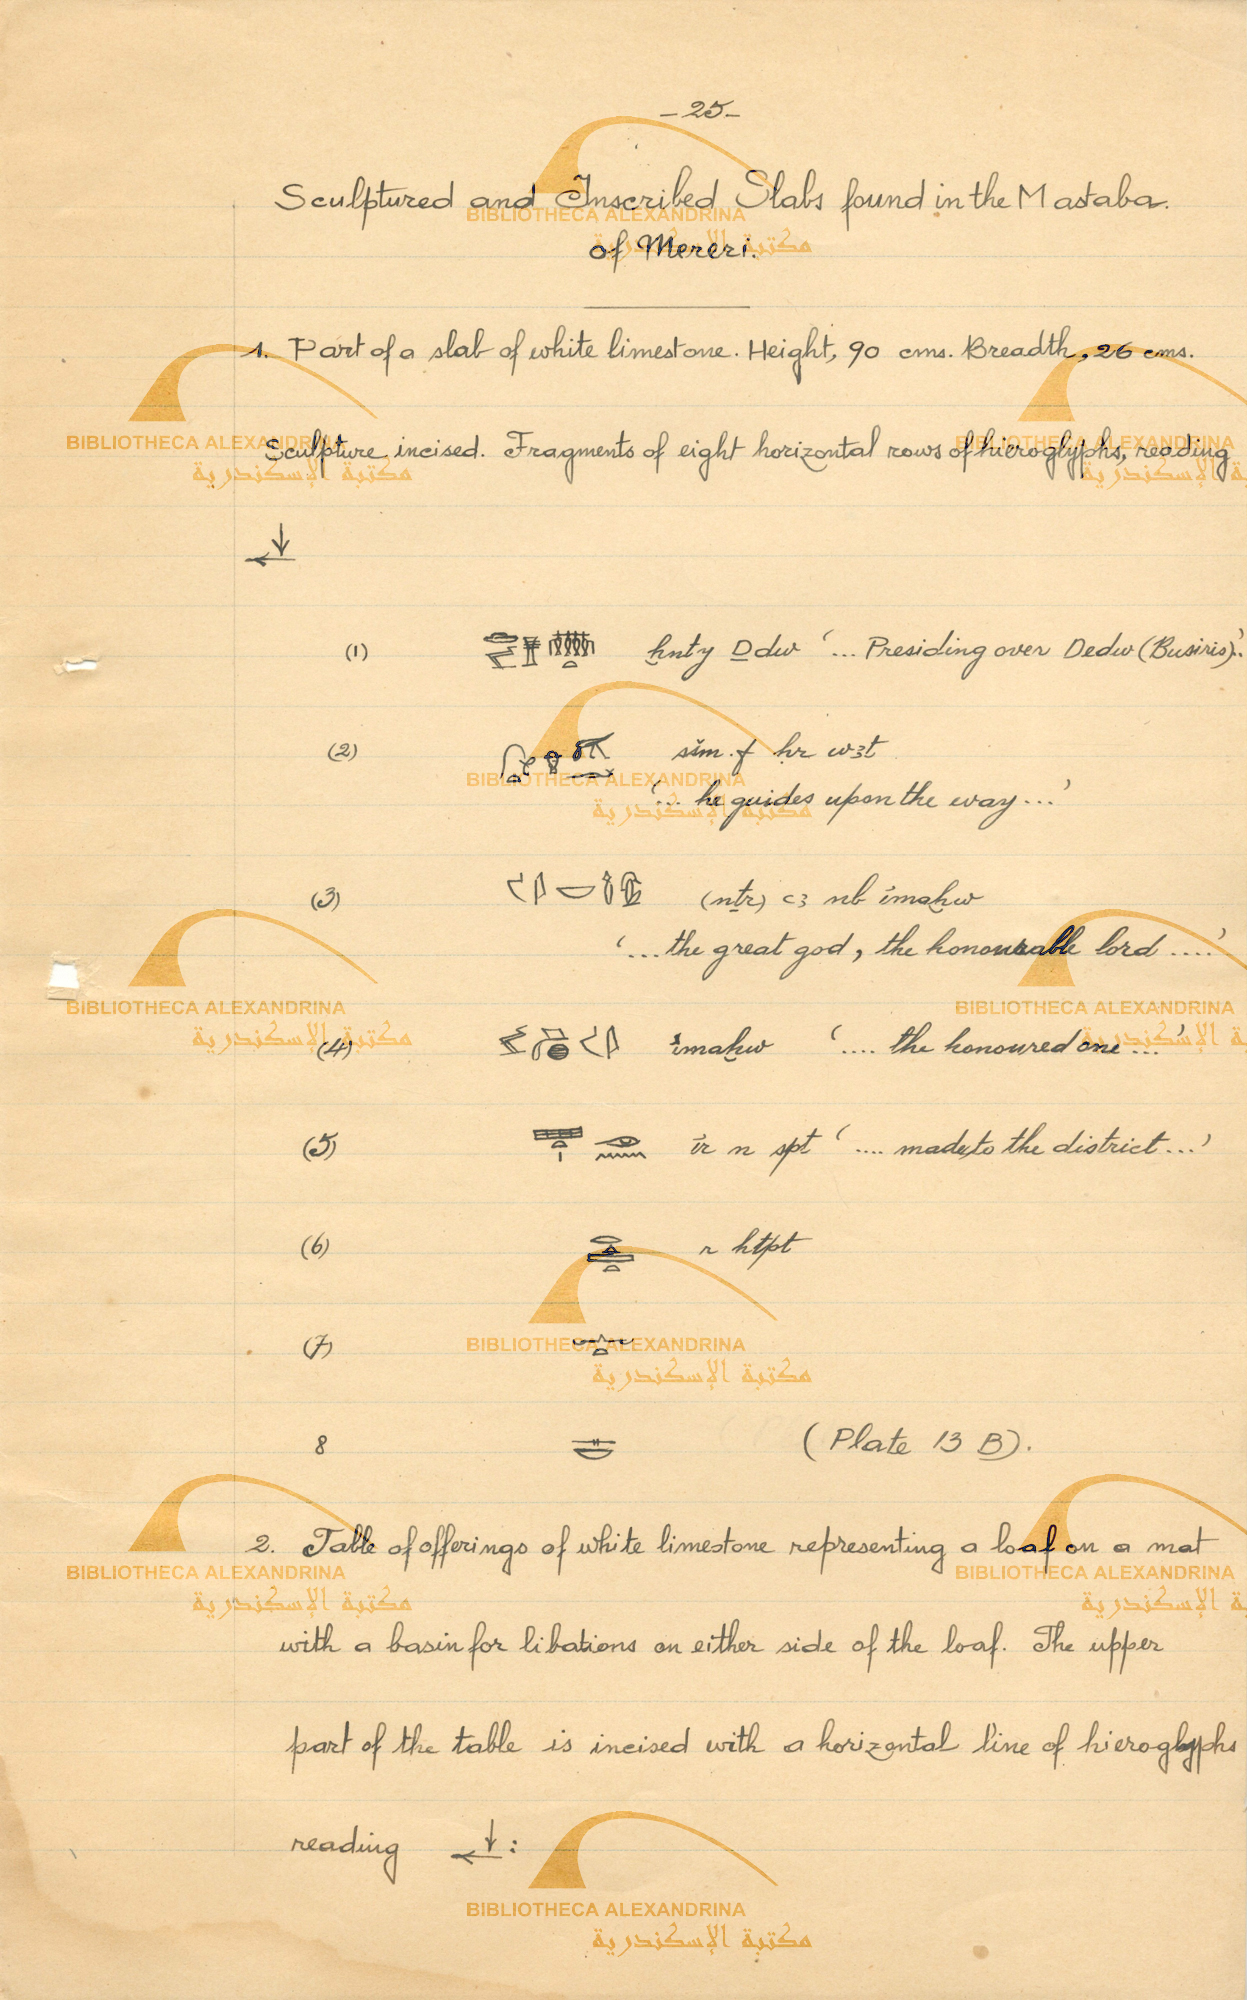 -25-
Sculptured and Inscribed Slabs found in the Mastaba.
of Mereri.
1. Part of a slab of white limestone. Height, 90 cms. Breadth, 26 cms.
Sculpture incised. Fragments of eight horizontal rows of hieroglyphs, reading
(1) ḫnty Ḏdw '... Presiding over Dedw (Busiris).'
(2) sšm.f ḥr wꜣt
'... he guides upon the way ...'
(3) (nṯr) ꜥꜣ nb imaḫw
'... the great god, the honourable lord ....'
(4) imaḫw '.... the honoured one ...'
(5) ir n spt '.... made to the district ...'
(6) r htpt
(7)
8 (Plate 13 B).
2. Table of offerings of white limestone representing a loaf on a mat
with a basin for libations on either side of the loaf. The upper
part of the table is incised with a horizontal line of hieroglyphs
reading :
BIBLIOTHECA ALEXANDRINA
مكتبة الإسكندرية